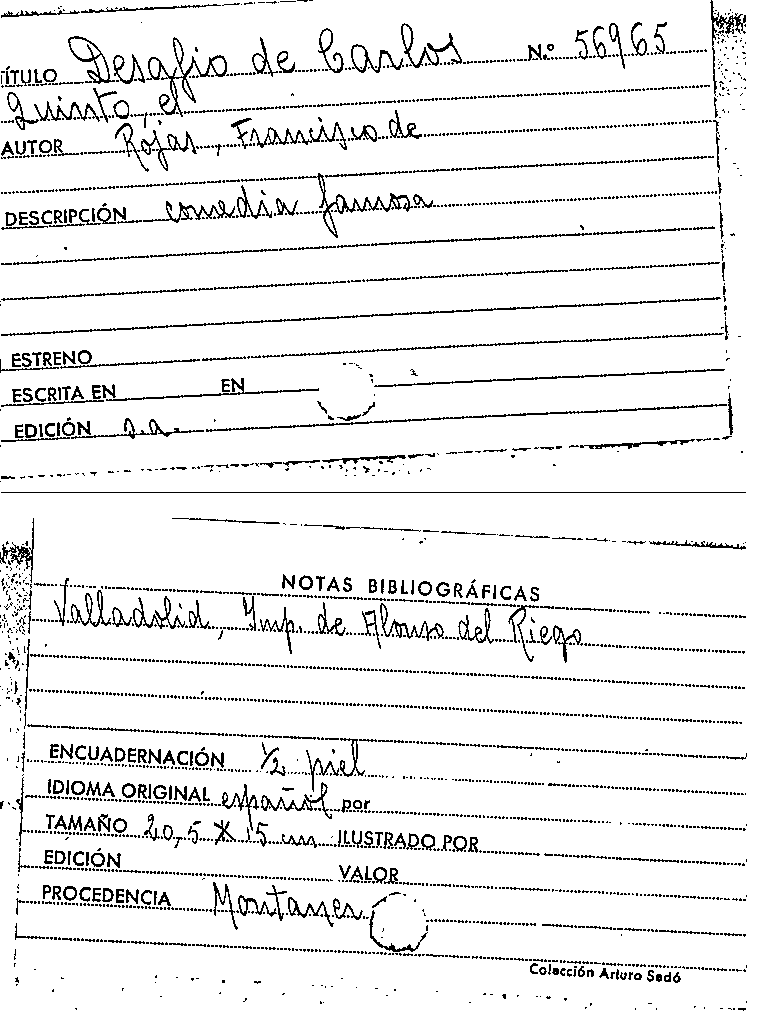 TÍTULO Desafio de Carlos N.º 56965
Quinto, el
AUTOR Rojas, Francisco de
DESCRIPCIÓN comedia famosa
ESTRENO
ESCRITA EN EN
EDICIÓN s.a.
NOTAS BIBLIOGRÁFICAS
Valladolid, Imp. de Alonso del Riego
ENCUADERNACIÓN 1/2 piel
IDIOMA ORIGINAL español por
TAMAÑO 20,5 X 15 cm ILUSTRADO POR
EDICIÓN VALOR
PROCEDENCIA Montaner
Colección Arturo Sedó